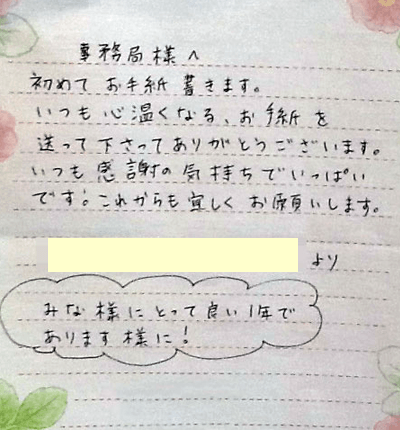 事務局様へ
初めてお手紙書きます。
いつも心温くなる、お手紙を
送って下さってありがとうございます。
いつも感謝の気持ちでいっぱい
です!これからも宜しくお願いします。
より
みな様にとって良い1年で
あります様に!